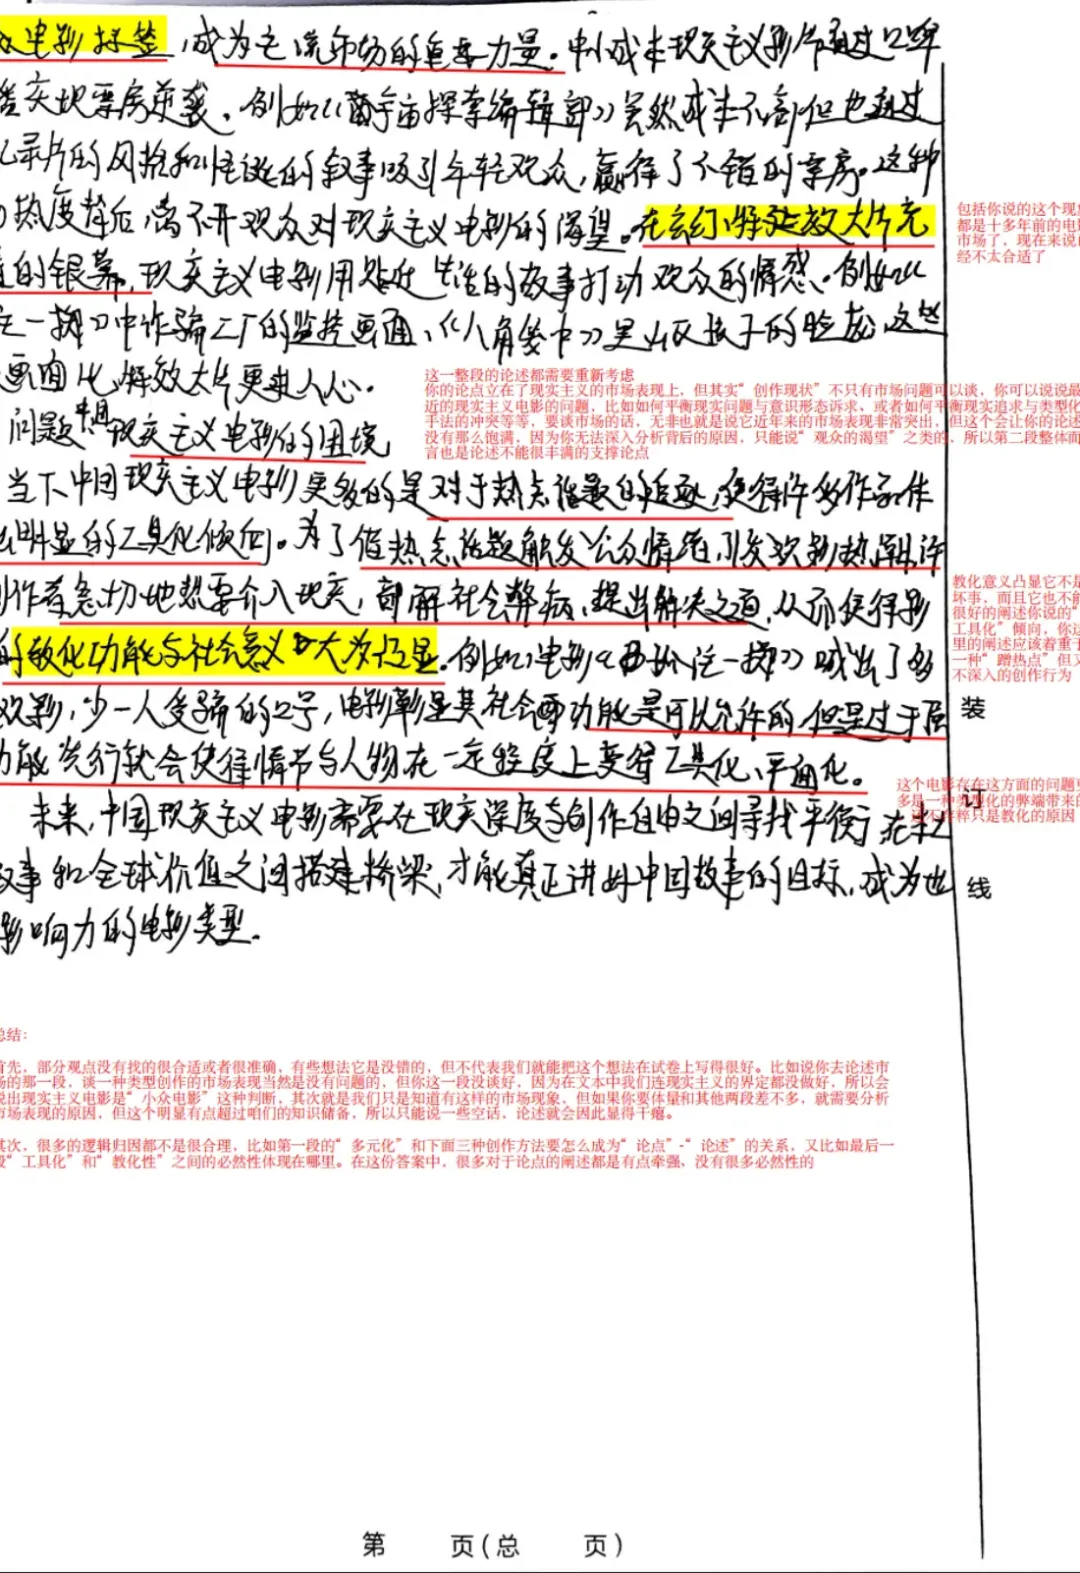 电影标签,成为主流市场的重要力量。中小成本现实主义影片通过口碑
实现票房逆袭。例如《宇宙探索编辑部》虽然成本不高但也通过
记录片的风格和怪诞的叙事吸引年轻观众,赢得了不错的票房。这种
热度背后,离不开观众对现实主义电影的渴望。在玄幻、特效大片充
的银幕,现实主义电影用贴近生活的故事打动观众的情感。例如《
一掷》中诈骗工厂的监控画面、《八角笼中》里山区孩子的脸庞,这些
画面比特效大片更走人心。
包括你说的这个现
都是十多年前的电
市场了,现在来说
经不太合适了
这一整段的论述都需要重新考虑
你的论点立在了现实主义的市场表现上,但其实“创作现状”不只有市场问题可以谈,你可以说说最
近的现实主义电影的问题,比如如何平衡现实问题与意识形态诉求、或者如何平衡现实追求与类型化
手法的冲突等等,要谈市场的话,无非也就是说它近年来的市场表现非常突出,但这个会让你的论述
没有那么饱满,因为你无法深入分析背后的原因,只能说“观众的渴望”之类的,所以第二段整体而
言也是论述不能很丰满的支撑论点
问题 现实主义电影的困境
当下中国现实主义电影更多的是对于热点话题的追逐,使得许多作品在
明显的工具化倾向。为了借热点话题触发公众情绪,引发观影热潮,许
创作者急切地想要介入现实,剖解社会弊病,提出解决之道,从而使得影
的教化功能与社会意义大为凸显。例如电影《孤注一掷》喊出了多
观影,少一人受骗的口号,电影彰显其社会功能是可以允许的,但是过于强
功能先行就会使得情节与人物在一定程度上变得工具化、平面化。
教化意义凸显它不是
坏事,而且它也不能
很好的阐述你说的“
工具化”倾向,你这
里的阐述应该着重于
一种“蹭热点”但又
不深入的创作行为
装
这个电影存在这方面的问题更
多是一种类型化的弊端带来的
不纯粹只是教化的原因
订
未来,中国现实主义电影需要在现实深度与创作自由之间寻找平衡,在本土
叙事和全球价值之间搭建桥梁,才能真正讲好中国故事的目标,成为世
影响力的电影类型。
线
总结:
首先,部分观点没有找的很合适或者很准确,有些想法它是没错的,但不代表我们就能把这个想法在试卷上写得很好。比如说你去论述市
场的那一段,谈一种类型创作的市场表现当然是没有问题的,但你这一段没谈好,因为在文本中我们连现实主义的界定都没做好,所以会
说出现实主义电影是“小众电影”这种判断,其次就是我们只是知道有这样的市场现象,但如果你要体量和其他两段差不多,就需要分析
市场表现的原因,但这个明显有点超过咱们的知识储备,所以只能说一些空话,论述就会因此显得干瘪。
其次,很多的逻辑归因都不是很合理,比如第一段的“多元化”和下面三种创作方法要怎么成为“论点”-“论述”的关系,又比如最后一
段“工具化”和“教化性”之间的必然性体现在哪里。在这份答案中,很多对于论点的阐述都是有点牵强、没有很多必然性的
第 页(总 页)